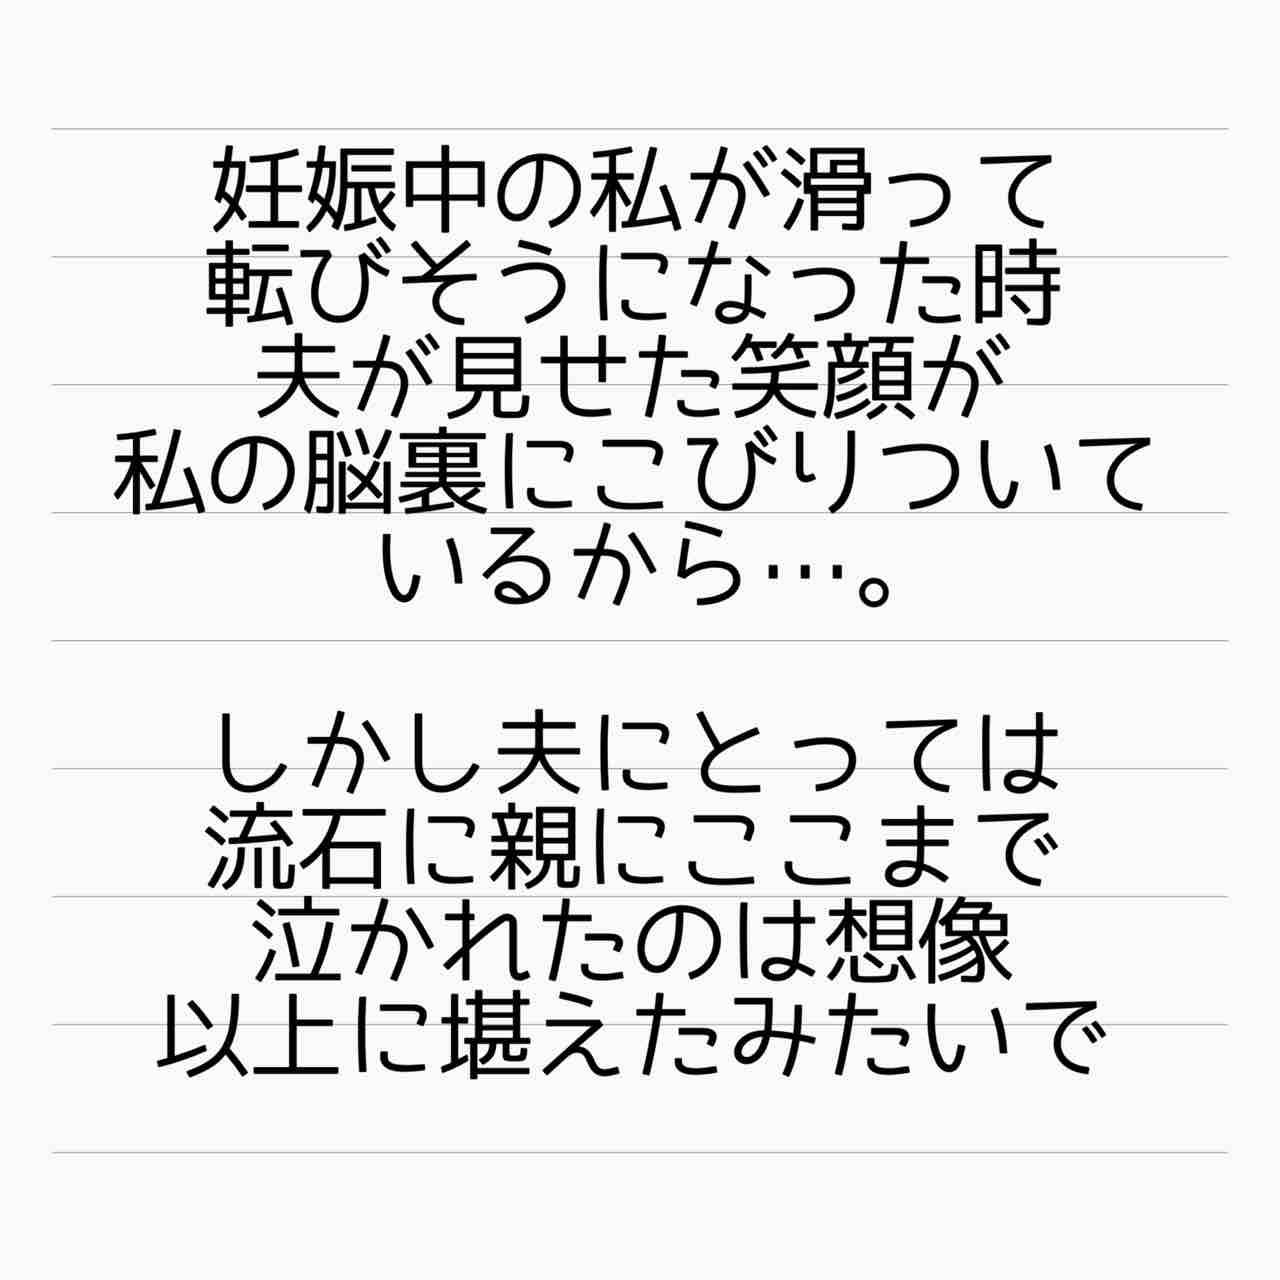 妊娠中の私が滑って
転びそうになった時
夫が見せた笑顔が
私の脳裏にこびりついて
いるから…。
しかし夫にとっては
流石に親にここまで
泣かれたのは想像
以上に堪えたみたいで